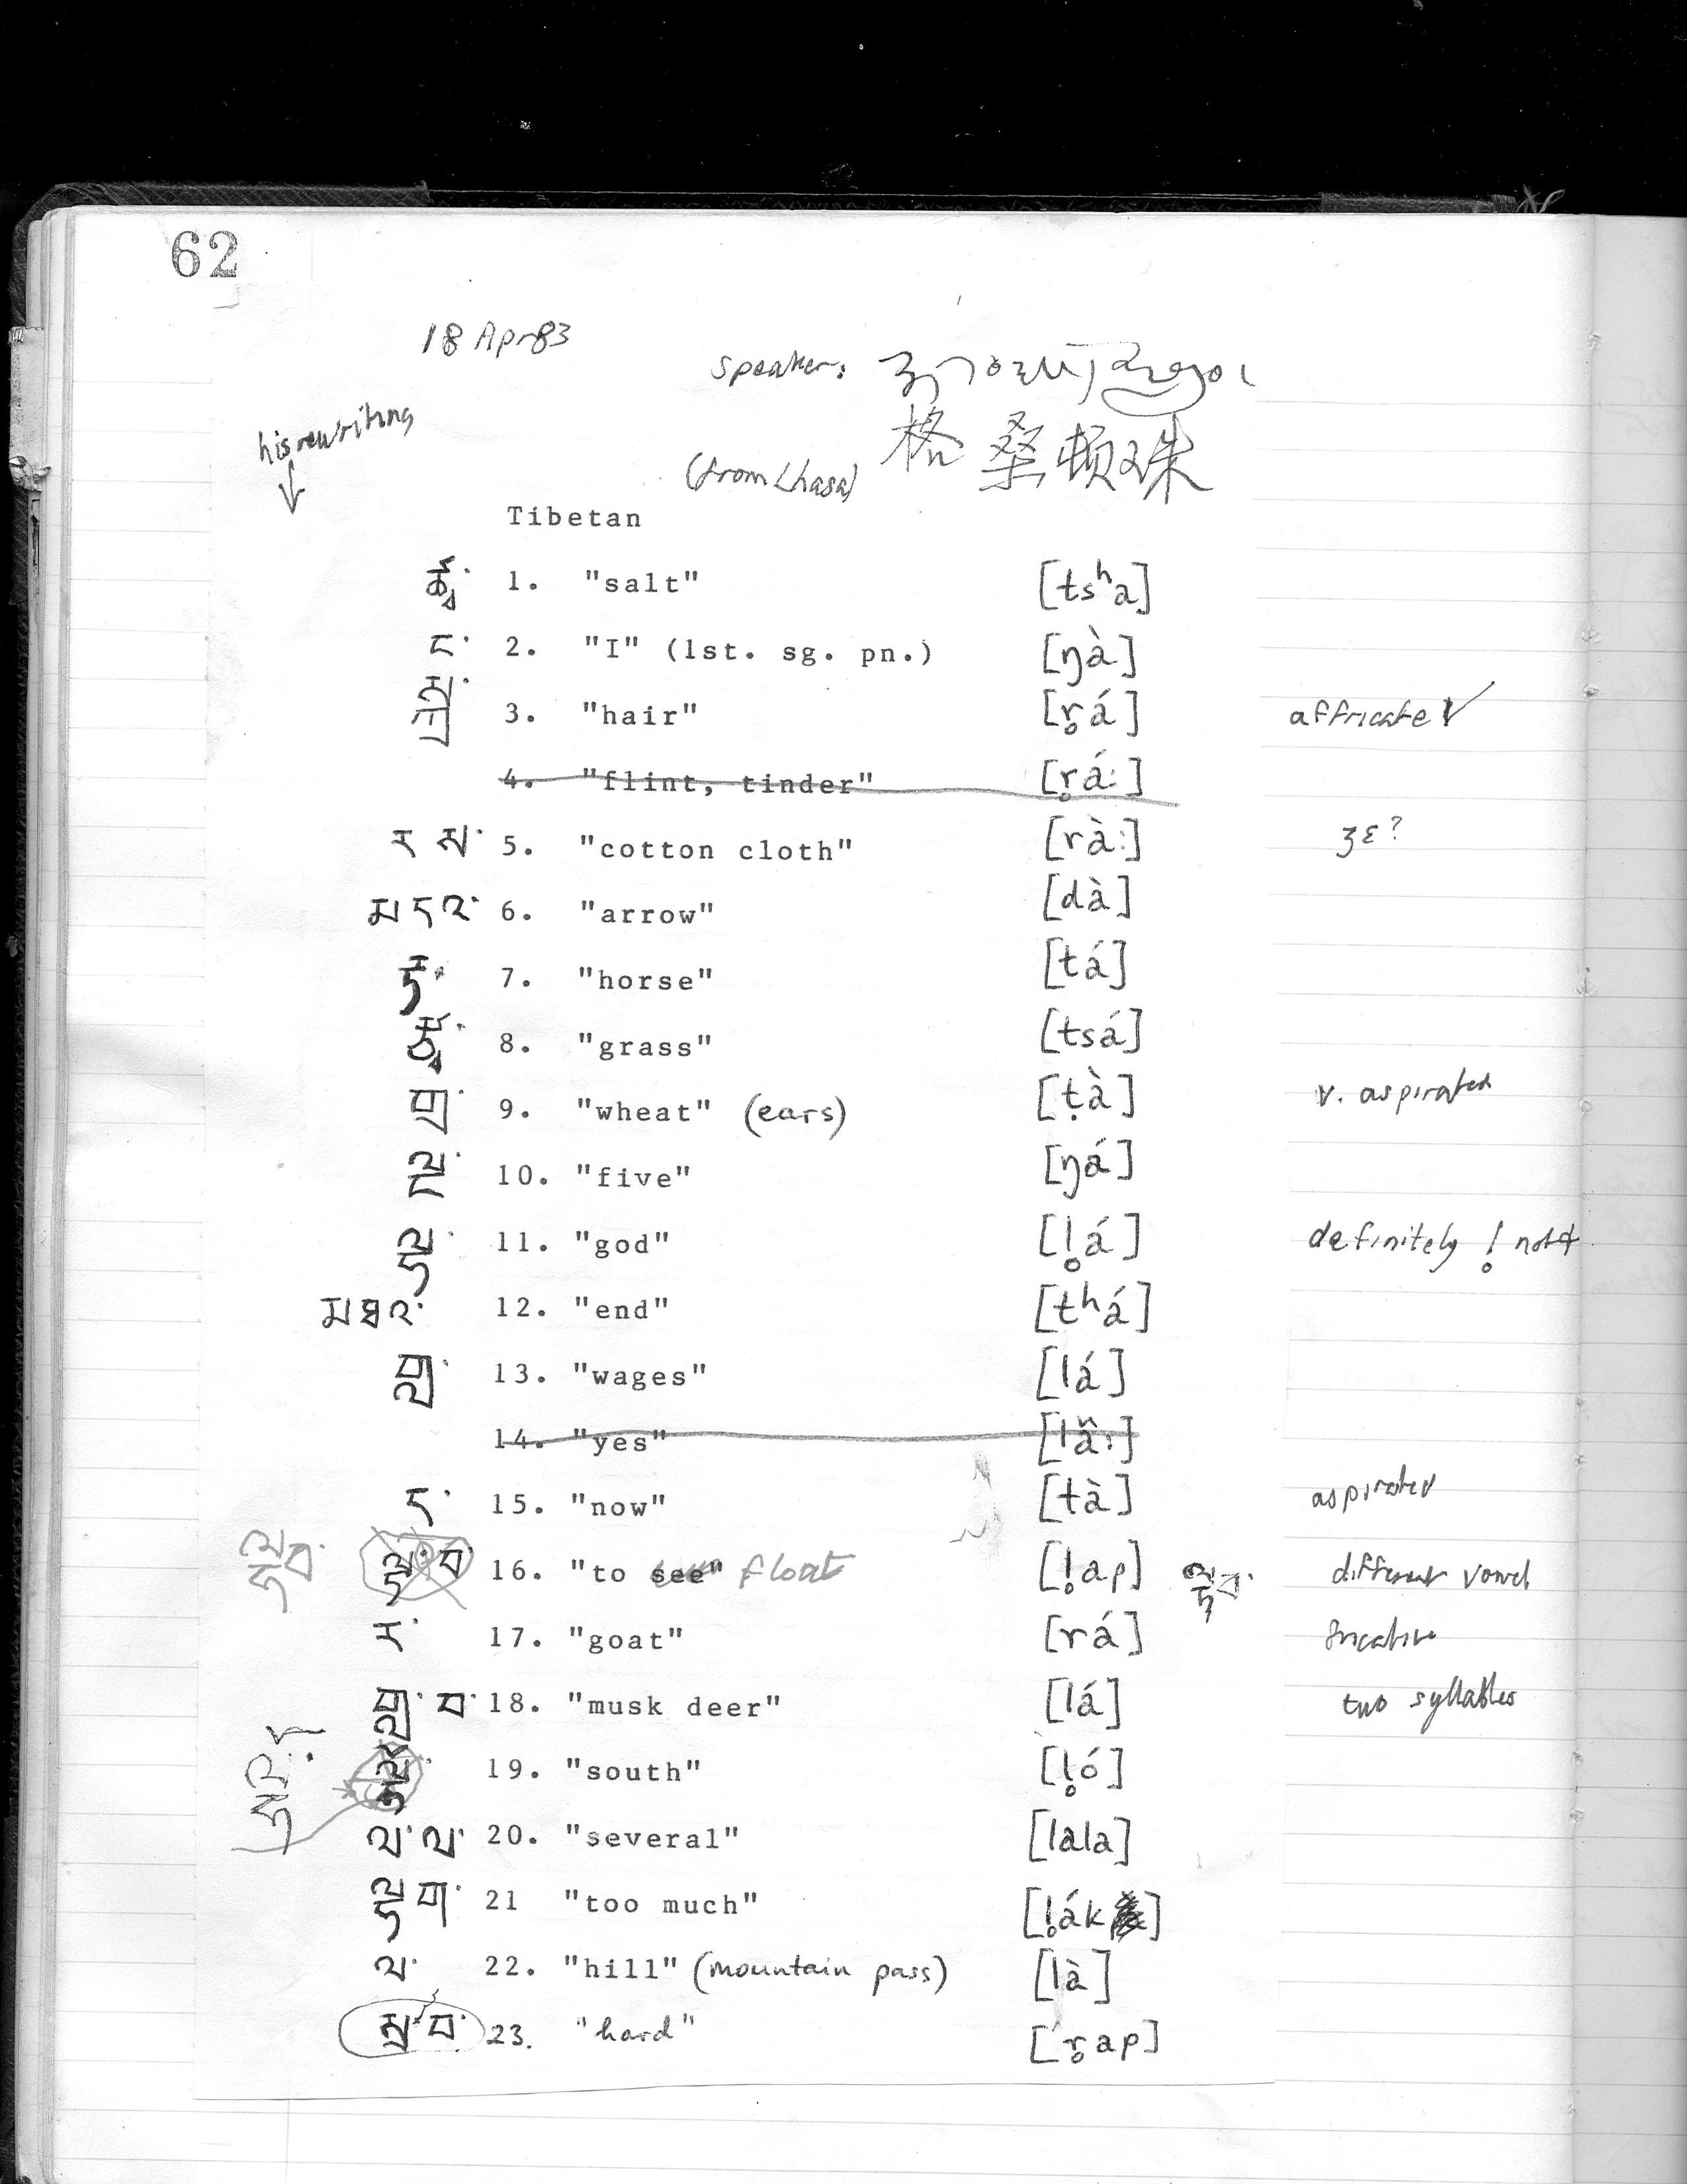 62
18 Apr 83
speaker:
格桑顿珠
(from Lhasa)
his rewriting
↓
Tibetan
ཚྭ་ 1. "salt" [tsʰa]
ང་ 2. "I" (1st. sg. pn.) [ŋà]
3. "hair" [r̥á] affricate ✓
4. "flint, tinder" [r̥á:]
རས་ 5. "cotton cloth" [rà:] ʒɛ?
མདའ་ 6. "arrow" [dà]
རྟ་ 7. "horse" [tá]
8. "grass" [tsá]
9. "wheat" (ears) [ṭà] v. aspirated
ལྔ་ 10. "five" [ŋá]
ལྷ་ 11. "god" [l̥á] definitely l̥ not ɬ
མཐའ་ 12. "end" [tʰá]
གླ་ 13. "wages" [lá]
14. "yes" [la:]
ད་ 15. "now" [tà] aspirated
16. "to see" float [l̥ap] different vowel
ར་ 17. "goat" [rá] fricative
གླ་བ་ 18. "musk deer" [lá] two syllables
19. "south" [l̥ó]
ལ་ལ་ 20. "several" [lala]
ལྷག་ 21 "too much" [l̥ák]
ལ་ 22. "hill" (mountain pass) [là]
23. "hard" [r̥ap]